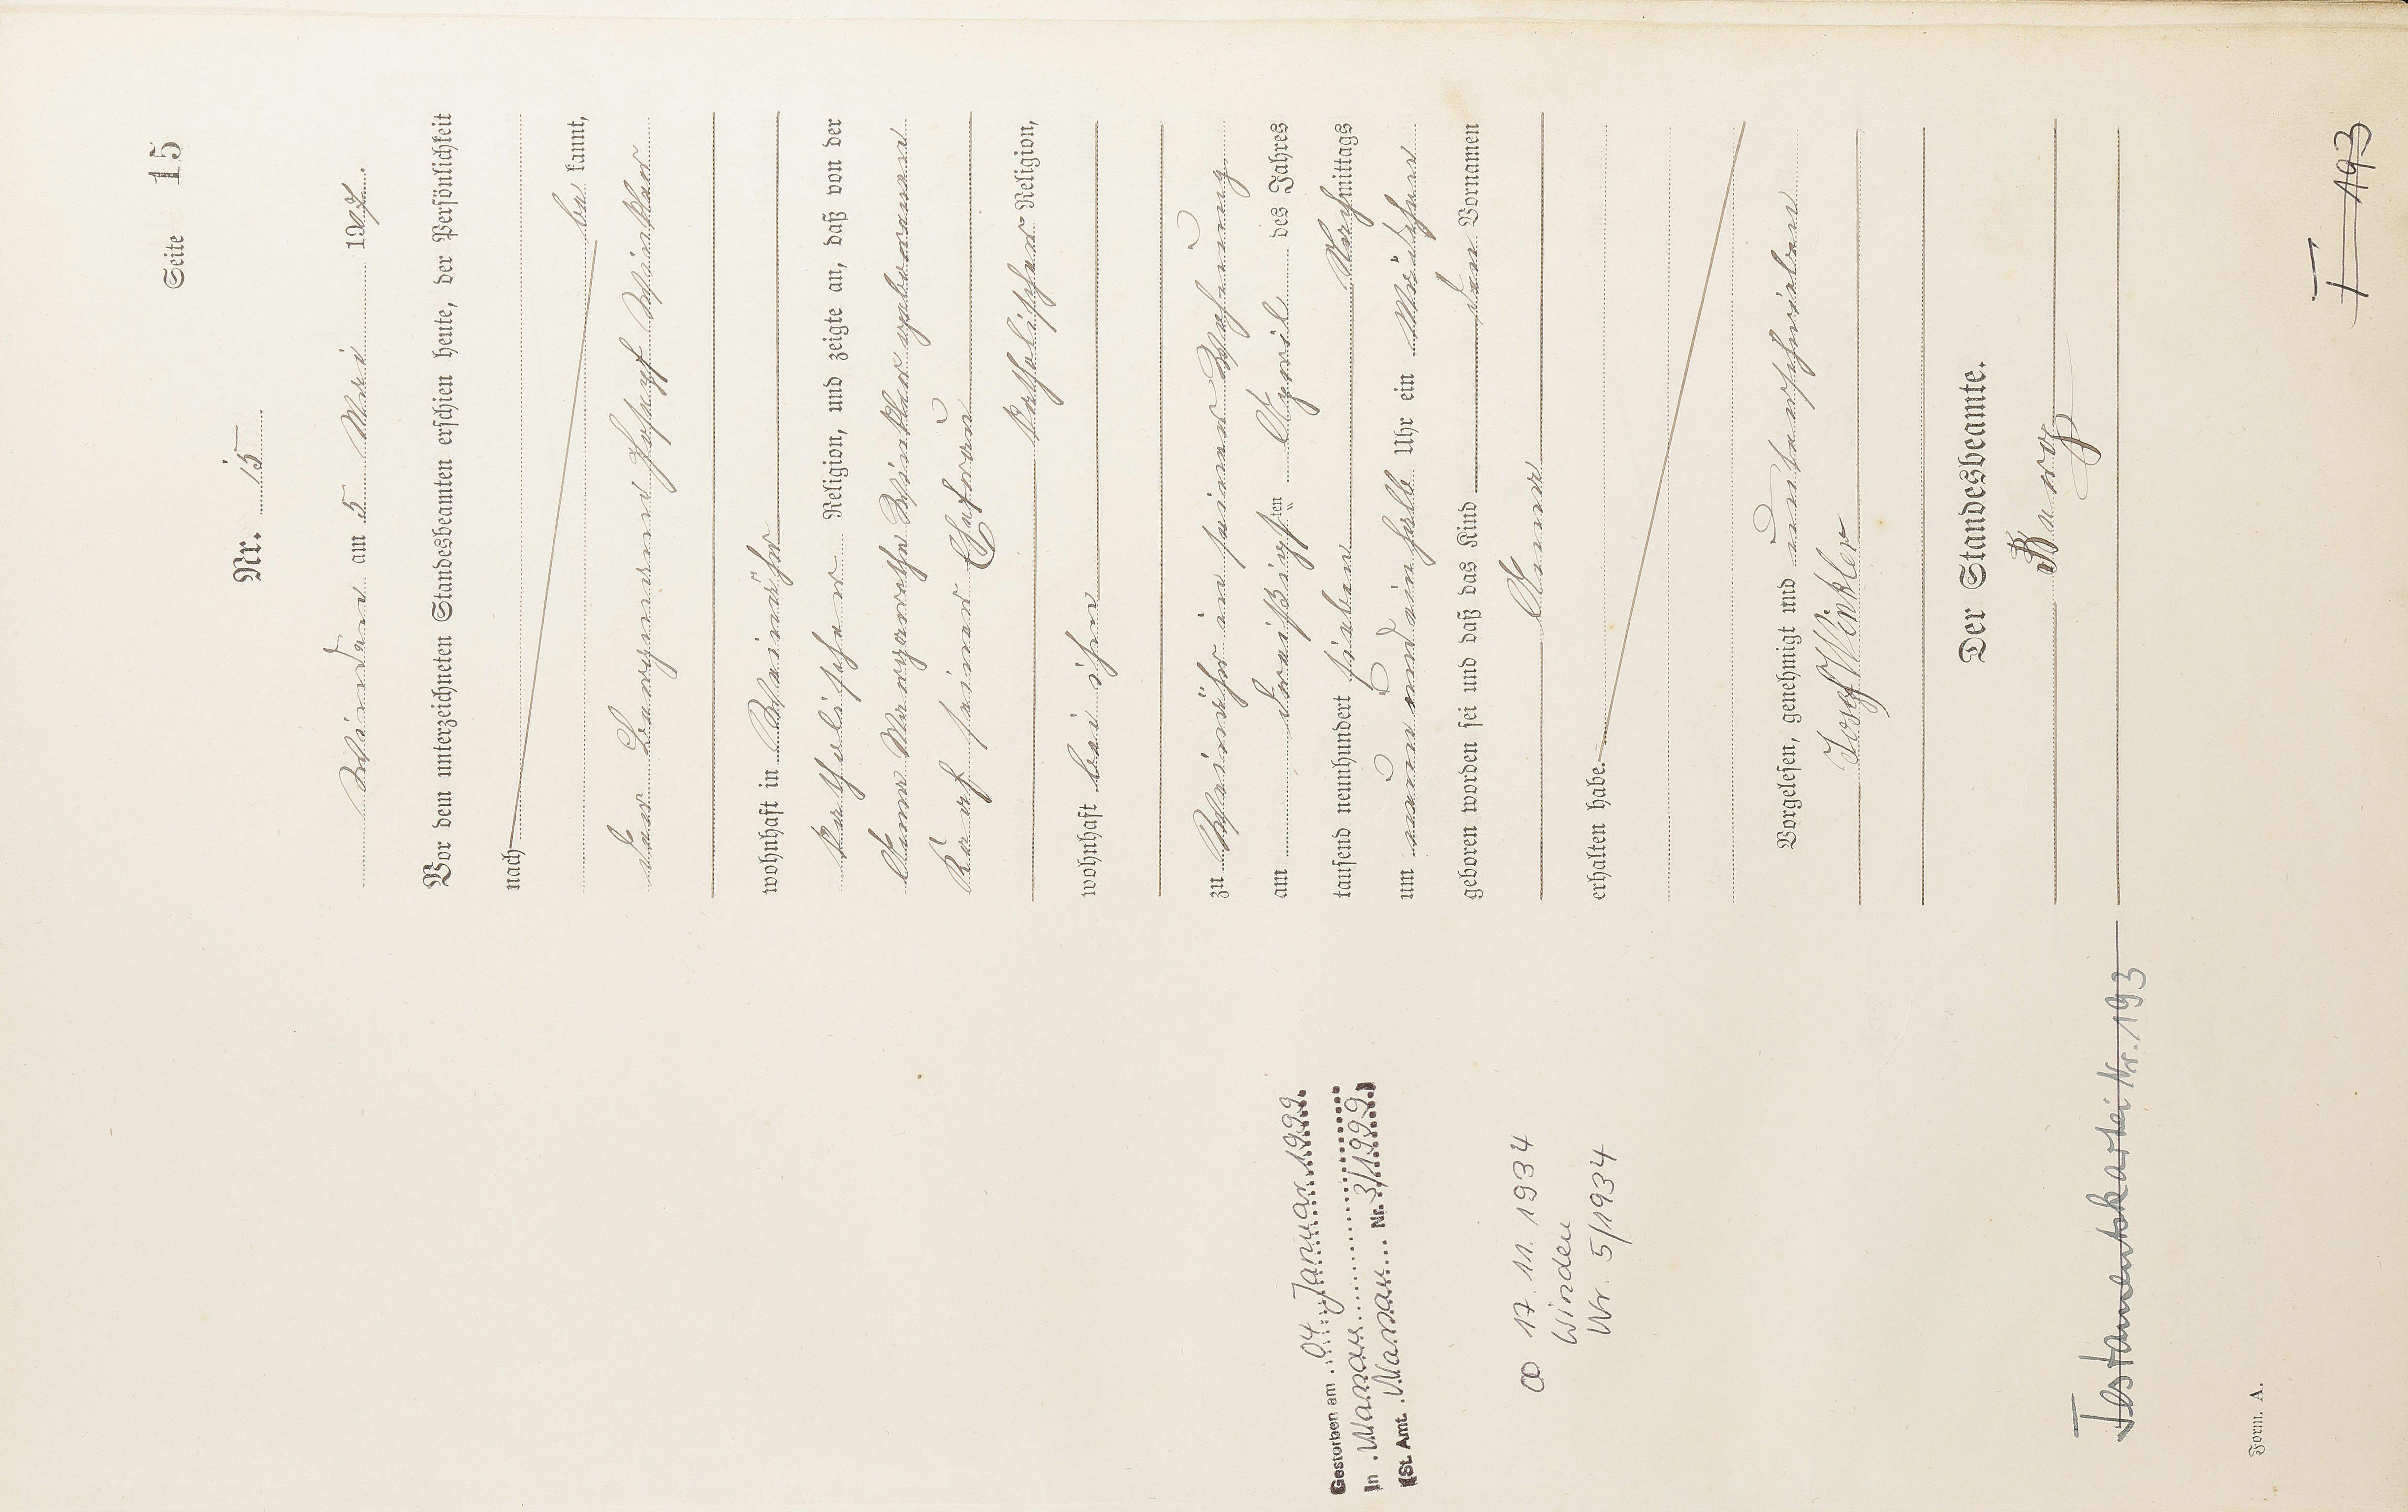 Seite 15
Nr. 15
Winden am 5 Mai 1907.
Vor dem unterzeichneten Standesbeamten erschien heute, der Persönlichkeit
nach
be kannt,
der Bergmann Joseph Winkler
wohnhaft in Weinähr
katholischer Religion, und zeigte an, daß von der
Anna Margaretha Winkler geborenen
seiner Ehefrau
katholischer Religion,
wohnhaft bei ihm
zu Weinähr in seiner Wohnung
am dreißigsten April des Jahres
tausend neunhundert sieben Nachmittags
um neun und ein halb Uhr ein Mädchen
geboren worden sei und daß das Kind den Vornamen
Anna
erhalten habe.
Vorgelesen, genehmigt und unterschrieben
Josef Winkler
Der Standesbeamte.
Gestorben am 04. Januar 1999
In Nassau
(St. Amt. Nassau Nr. 3/1999)
∞ 17.11.1934
Winden
Nr. 5/1934
Testamentskartei Nr. 193
T 193
Form. A.